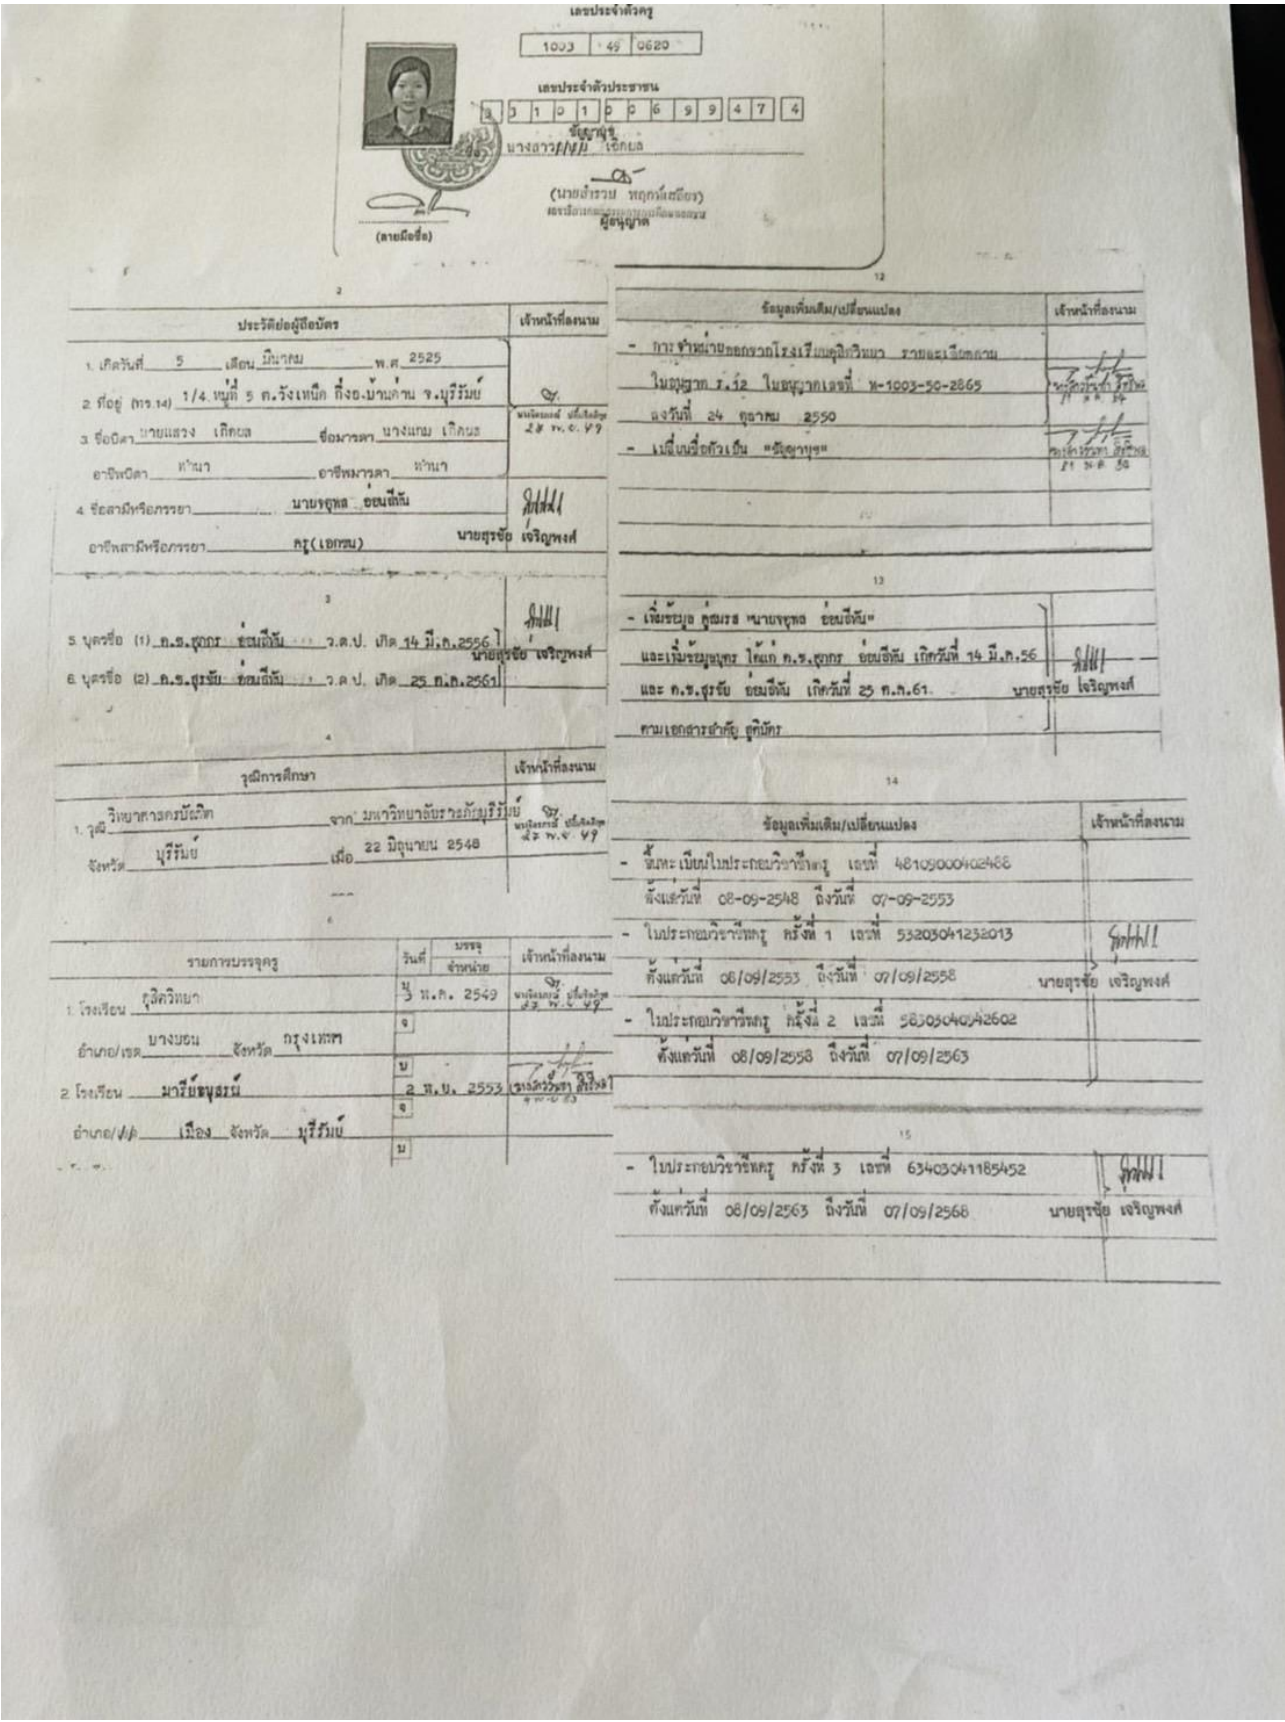 เลขประจำตัวครู
1003 49 0620
เลขประจำตัวประชาชน
3 3 1 0 1 0 0 6 9 9 4 7 4
ชัญญานุช
นางสาว เจิกยล
(นายสำรวม พฤกษ์เสถียร)
ผู้อนุญาต
(ลายมือชื่อ)
2
ประวัติย่อผู้ถือบัตร เจ้าหน้าที่ลงนาม
1. เกิดวันที่ 5 เดือน มีนาคม พ.ศ. 2525
2. ที่อยู่ (ทร.14) 1/4 หมู่ที่ 5 ต.วังเหนือ กิ่งอ.บ้านด่าน จ.บุรีรัมย์
27 พ.ย. 49
3. ชื่อบิดา นายแสวง ชื่อมารดา นางแถม
อาชีพบิดา ทำนา อาชีพมารดา ทำนา
4. ชื่อสามีหรือภรรยา นายจตุพล อ่อนสีทัน
อาชีพสามีหรือภรรยา ครู(เอกชน) นายสุรชัย เจริญพงศ์
3
5. บุตรชื่อ (1) ด.ช.ศุภกร อ่อนสีทัน ว.ด.ป. เกิด 14 มี.ค.2556
นายสุรชัย เจริญพงศ์
6. บุตรชื่อ (2) ด.ช.สุรชัย อ่อนสีทัน ว.ด.ป. เกิด 25 ก.ค.2561
4
วุฒิการศึกษา เจ้าหน้าที่ลงนาม
1. วุฒิ วิทยาศาสตรบัณฑิต จาก มหาวิทยาลัยราชภัฏบุรีรัมย์
27 พ.ย. 49
จังหวัด บุรีรัมย์ เมื่อ 22 มิถุนายน 2548
6
รายการบรรจุครู วันที่ บรรจุ จำหน่าย เจ้าหน้าที่ลงนาม
1. โรงเรียน ดุสิตวิทยา บ 3 พ.ค. 2549
27 พ.ย. 49
อำเภอ/เขต บางบอน จังหวัด กรุงเทพฯ จ
2. โรงเรียน มารีย์อนุสรณ์ บ 2 พ.ย. 2553
อำเภอ/ เมือง จังหวัด บุรีรัมย์ จ
บ
12
ข้อมูลเพิ่มเติม/เปลี่ยนแปลง เจ้าหน้าที่ลงนาม
- การจำหน่ายออกจากโรงเรียนดุสิตวิทยา รายละเอียดตาม
ใบอนุญาต ร.12 ใบอนุญาตเลขที่ ห-1003-50-2865
ลงวันที่ 24 ตุลาคม 2550
- เปลี่ยนชื่อตัวเป็น "ชัญญานุช"
13
- เพิ่มข้อมูล คู่สมรส "นายจตุพล อ่อนสีทัน"
และเพิ่มข้อมูลบุตร ได้แก่ ด.ช.ศุภกร อ่อนสีทัน เกิดวันที่ 14 มี.ค.56
และ ด.ช.สุรชัย อ่อนสีทัน เกิดวันที่ 25 ก.ค.61 นายสุรชัย เจริญพงศ์
ตามเอกสารสำคัญ สูติบัตร
14
ข้อมูลเพิ่มเติม/เปลี่ยนแปลง เจ้าหน้าที่ลงนาม
- ขึ้นทะเบียนใบประกอบวิชาชีพครู เลขที่ 48109000402488
ตั้งแต่วันที่ 08-09-2548 ถึงวันที่ 07-09-2553
- ใบประกอบวิชาชีพครู ครั้งที่ 1 เลขที่ 53203041232013
ตั้งแต่วันที่ 08/09/2553 ถึงวันที่ 07/09/2558 นายสุรชัย เจริญพงศ์
- ใบประกอบวิชาชีพครู ครั้งที่ 2 เลขที่ 58303040942602
ตั้งแต่วันที่ 08/09/2558 ถึงวันที่ 07/09/2563
15
- ใบประกอบวิชาชีพครู ครั้งที่ 3 เลขที่ 63403041185452
ตั้งแต่วันที่ 08/09/2563 ถึงวันที่ 07/09/2568 นายสุรชัย เจริญพงศ์